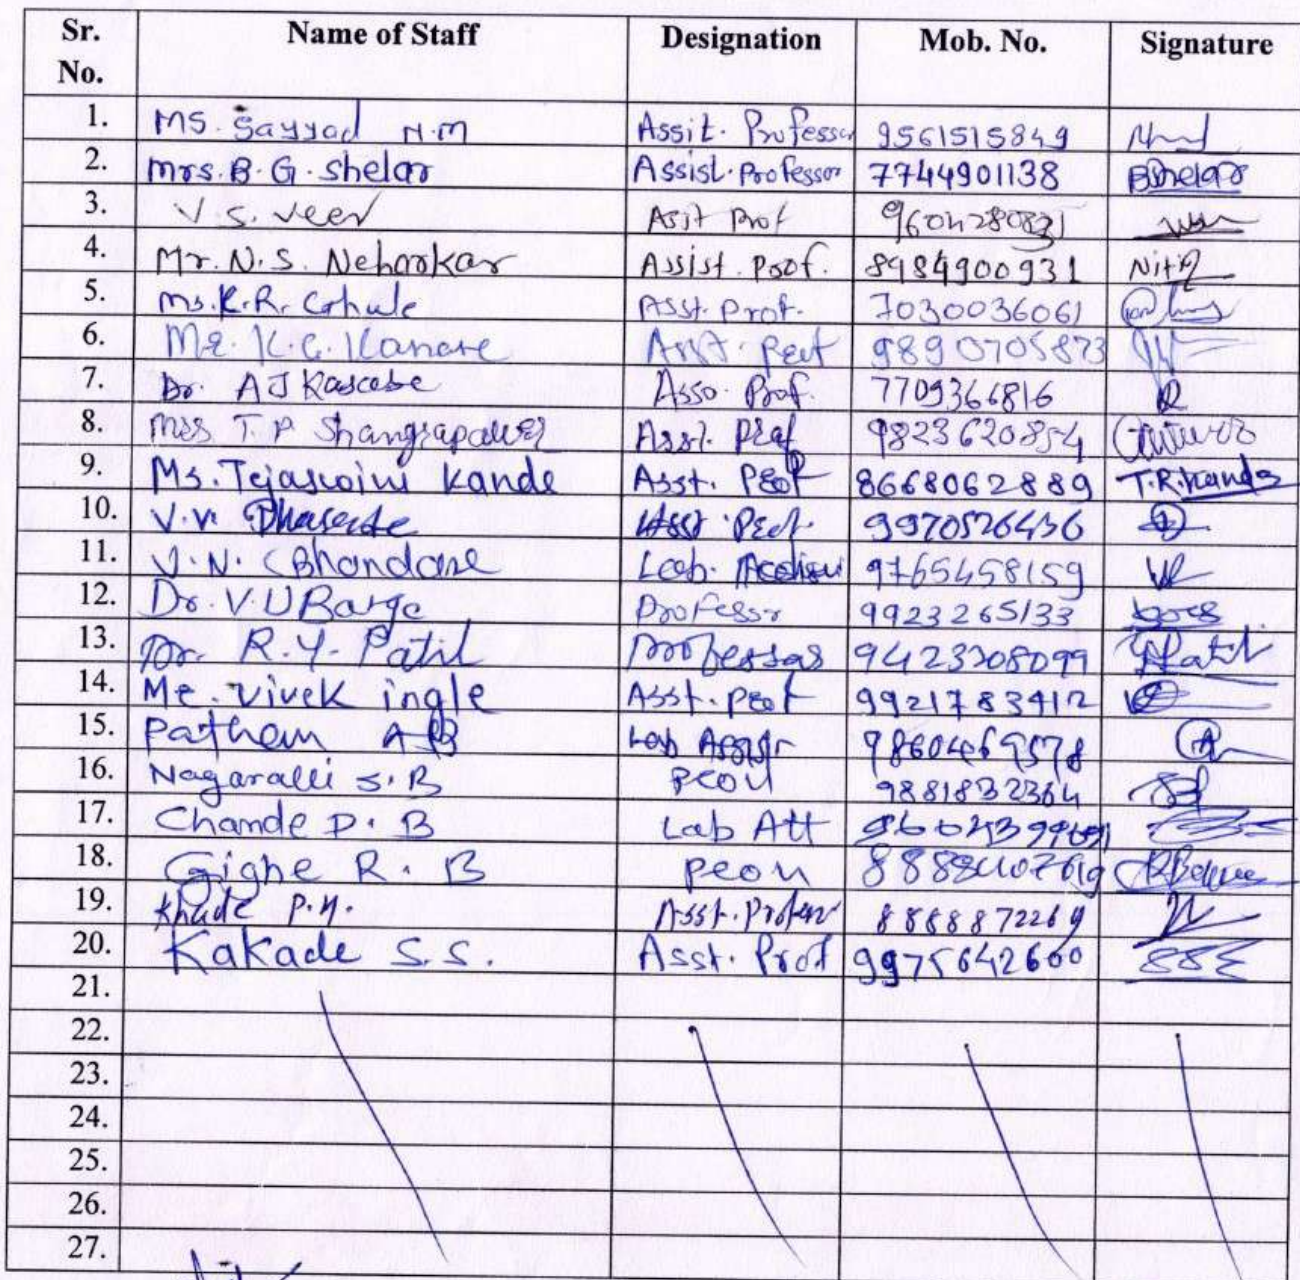 Sr. No. Name of Staff Designation Mob. No. Signature
1. Ms. Sayyad N.M Assit. Professor 9561515849
2. Mrs. B. G. Shelar Assist. Professor 7744901138 BShelar
3. V S. Veer Asit Prof
4. Mr. N. S. Neharkar Assist. Prof. 8984900931 Nitin
5. Ms. K. R. Ghule Asst. Prof. 7030036061
6. Mr. K. G. Kanore Asst. Prof 9890705873
7. Dr. A J Kascabe Asso. Prof. 7709366816
8. T. P Asst. Prof 9823620854
9. Ms. Tejaswini Kande Asst. Prof 8668062889 T.R.Kande
10. V.V. Asst Prof. 9970526436
11. V. N. Bhandare Lab. 9765458159
12. Dr. V. U Barge Professr 9923265133
13. Dr. R. Y. Patil Professor 9423308099 Patil
14. Mr. Vivek ingle Asst. Prof 9921783412
15. Pathan A B Lab 9860469578
16. Nagaralli S. B Peon 9881832364
17. Chande D. B Lab Att
18. Gighe R. B Peon
19. Khade P.Y. Asst. 8888872269
20. Kakade S. S. Asst. Prof 9975642600
21.
22.
23.
24.
25.
26.
27.